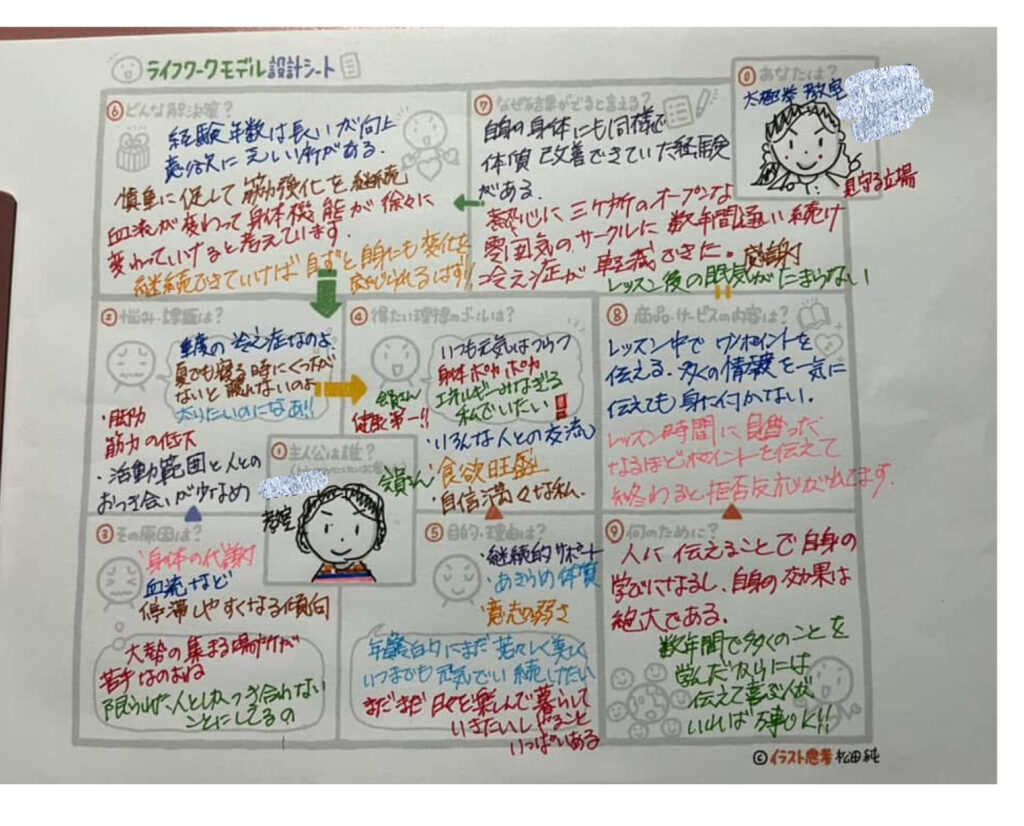 ライフワークモデル設計シート
⓪あなたは?
太極拳 教室
見守る立場
⑥どんな解決策?
経験年数は長いが向上
意欲に乏しい所がある.
慎重に促して筋力強化を継続
血流が変わって身体機能が徐々に
変わっていけると考えています.
継続できていけば自ずと自身にも変化を
感じられるはず!!
⑦なぜ結果がでると言える?
自身の身体にも同様で
体質改善できていた経験
がある.
熱心に三ケ所のオープンな
雰囲気のサークルに数年間通い続け
冷え症が軽減できた。感謝
レッスン後の眠気がたまらない
②悩み・課題は?
重度の冷え症なのよ
夏でも寝る時にくつ下が
ないと眠れないのよ
太りたいのになあ!!
・脂肪
筋力の低下
・活動範囲と人との
おつき合いが少なめ
④得たい理想のゴールは?
いつも元気はつらつ
身体ポカポカ
エネルギーみなぎる
私でいたい!
会員さん
健康第一!!
・いろんな人との交流
会員さん
・食欲旺盛
・自信満々な私.
⑧商品・サービスの内容は?
レッスン中でワンポイントを
伝える.多くの情報を一気に
伝えても身に付かない.
レッスン時間に見合った
なるほどポイントを伝えて
終わると拒否反応がへれてます.
①主人公は誰?
教室
③その原因は?
・身体の代謝
血流など
停滞しやすくなる傾向
大勢の集まる場所が
苦手なのよね
限られた人としかつき合わない
ことにしてるの
⑤目的、理由は?
・継続的サポート
・あきらめ体質
・意志の弱さ
年齢的にまだ若々しく美しく
いつまでも元気でい続けたい
まだまだ日々を楽しんで暮らして
いきたいし、やること
いっぱいある
⑨何のために?
人に伝えることで自身の
学びになるし、自身の効果は
絶大である.
数年間で多くのことを
学んだからには
伝えて喜ぶ人が
いれば万事OK!!
©イラスト思考 松田純